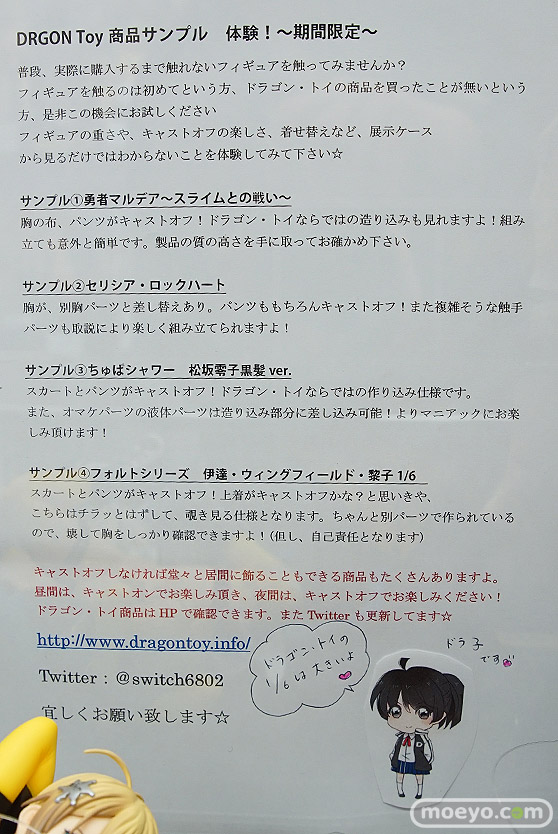 DRGON Toy 商品サンプル　体験！～期間限定～
普段、実際に購入するまで触れないフィギュアを触ってみませんか？
フィギュアを触るのは初めてという方、ドラゴン・トイの商品を買ったことが無いという
方、是非この機会にお試しください
フィギュアの重さや、キャストオフの楽しさ、着せ替えなど、展示ケース
から見るだけではわからないことを体験してみて下さい☆
サンプル①勇者マルデア～スライムとの戦い～
胸の布、パンツがキャストオフ！ドラゴン・トイならではの造り込みも見れますよ！組み
立ても意外と簡単です。製品の質の高さを手に取ってお確かめ下さい。
サンプル②セリシア・ロックハート
胸が、別胸パーツと差し替えあり。パンツももちろんキャストオフ！また複雑そうな触手
パーツも取説により楽しく組み立てられますよ！
サンプル③ちゅぱシャワー　松坂零子黒髪 ver.
スカートとパンツがキャストオフ！ドラゴン・トイならではの作り込み仕様です。
また、オマケパーツの液体パーツは造り込み部分に差し込み可能！よりマニアックにお楽
しみ頂けます！
サンプル④フォルトシリーズ　伊達・ウィングフィールド・黎子 1/6
スカートとパンツがキャストオフ！上着がキャストオフかな？と思いきや、
こちらはチラッとはずして、覗き見る仕様となります。ちゃんと別パーツで作られている
ので、壊して胸をしっかり確認できますよ！（但し、自己責任となります）
キャストオフしなければ堂々と居間に飾ることもできる商品もたくさんありますよ。
昼間は、キャストオンでお楽しみ頂き、夜間は、キャストオフでお楽しみください！
ドラゴン・トイ商品は HP で確認できます。また Twitter も更新してます☆
http://www.dragontoy.info/
Twitter：@switch6802
宜しくお願い致します☆
ドラゴン・トイの
1/6は大きいよ
ドラ子
です
moeyo.com